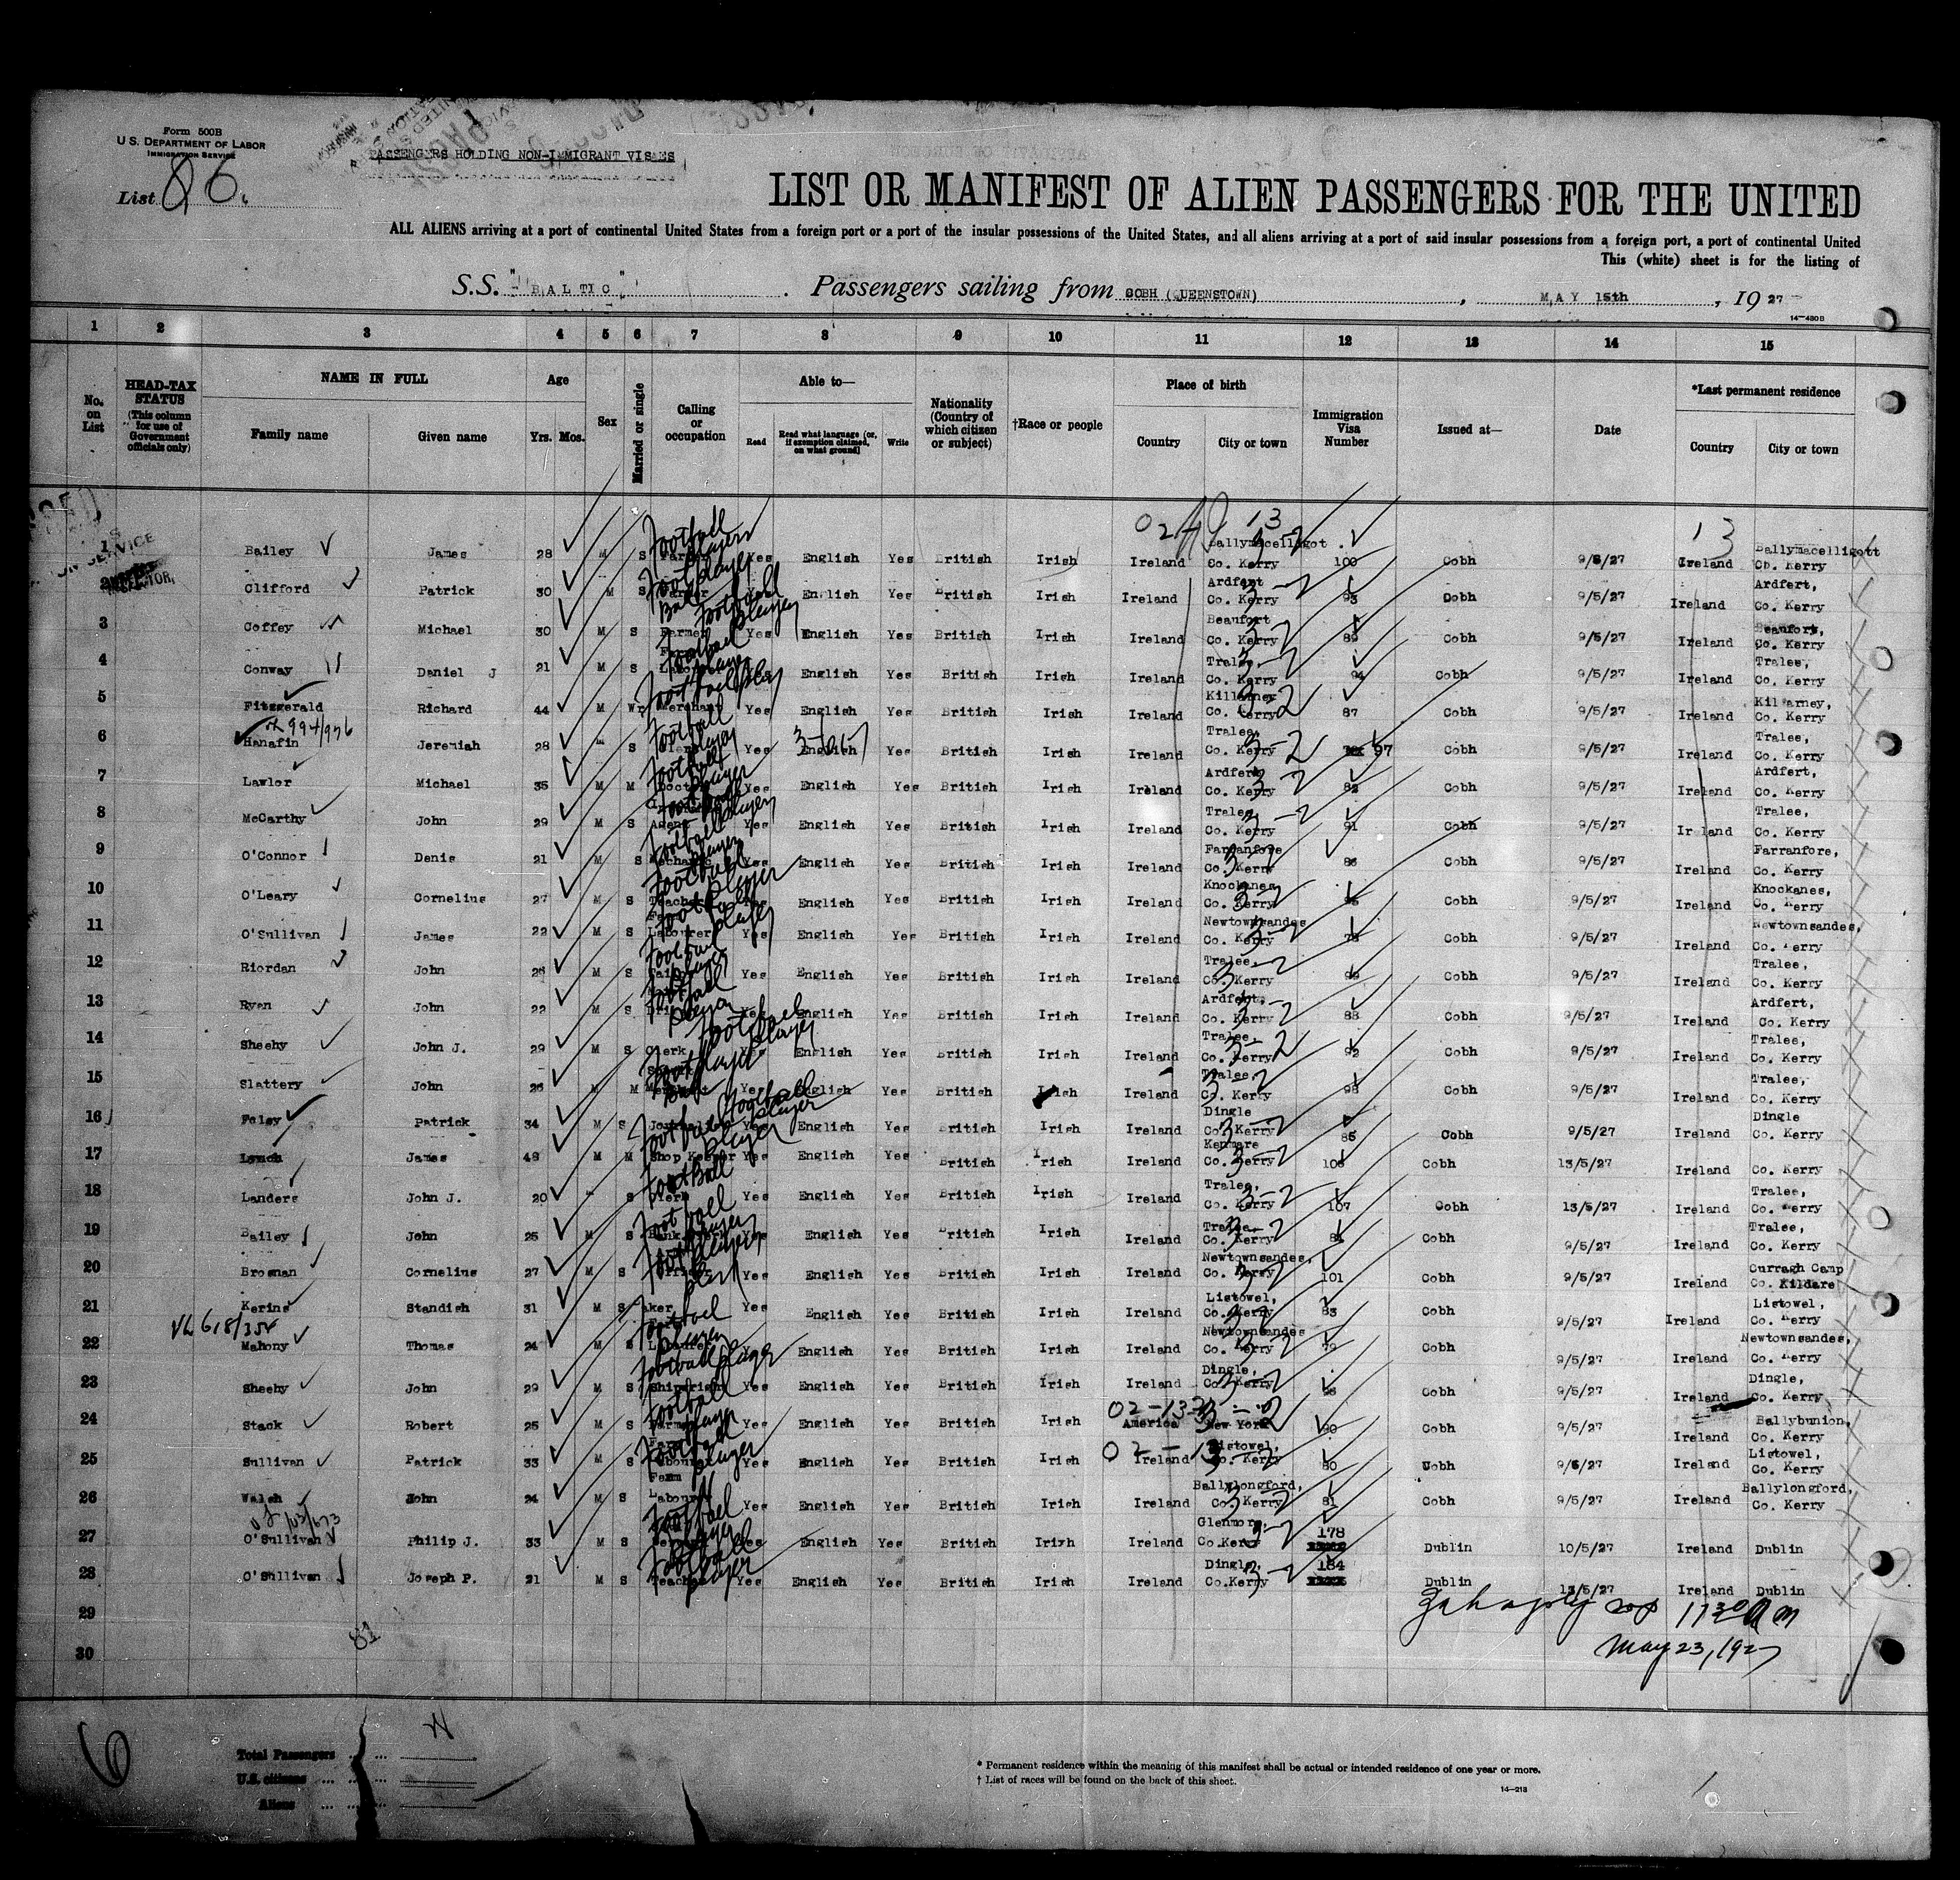 Form 500B
U. S. DEPARTMENT OF LABOR
IMMIGRATION SERVICE
PASSENGERS HOLDING NON-IMMIGRANT VISAES
List 86.
LIST OR MANIFEST OF ALIEN PASSENGERS FOR THE UNITED
ALL ALIENS arriving at a port of continental United States from a foreign port or a port of the insular possessions of the United States, and all aliens arriving at a port of said insular possessions from a foreign port, a port of continental United
This (white) sheet is for the listing of
S.S. "BALTIC" . Passengers sailing from COBH (QUEENSTOWN) , MAY 15th , 1927
14—430B
1 2 3 4 5 6 7 8 9 10 11 12 13 14 15
No. on List HEAD-TAX STATUS (This column for use of Government officials only) NAME IN FULL Family name Given name Age Yrs. Mos. Sex Married or single Calling or occupation Able to— Read Read what language (or, if exemption claimed, on what ground) Write Nationality (Country of which citizen or subject) †Race or people Place of birth Country City or town Immigration Visa Number Issued at— Date *Last permanent residence Country City or town
1 Bailey James 28 M S Football player Yes English Yes British Irish Ireland Ballymacelligot Co. Kerry 100 Cobh 9/5/27 Ireland Ballymacelligott Co. Kerry
Clifford Patrick 30 M S Football player English Yes British Irish Ireland Ardfert Co. Kerry 93 Cobh 9/5/27 Ireland Ardfert, Co. Kerry
3 Coffey Michael 30 M S Farmer Football player Yes English Yes British Irish Ireland Beaufort Co. Kerry 89 Cobh 9/5/27 Ireland Beaufort, Co. Kerry
4 Conway Daniel J 21 M S Football player English Yes British Irish Ireland Tralee, Co. Kerry 94 Cobh 9/5/27 Ireland Tralee, Co. Kerry
5 Fitzgerald Richard 44 M Wr Merchant Football player Yes English Yes British Irish Ireland Killarney Co. Kerry 87 Cobh 9/5/27 Ireland Killarney, Co. Kerry
6 Hanafin Jeremiah 28 S Football player Yes English Yes British Irish Ireland Tralee, Co. Kerry 97 Cobh 9/5/27 Ireland Tralee, Co. Kerry
7 Lawlor Michael 35 M M Football player Yes English Yes British Irish Ireland Ardfert Co. Kerry 82 Cobh 9/5/27 Ireland Ardfert, Co. Kerry
8 McCarthy John 29 M S Agent Football player Yes English Yes British Irish Ireland Tralee, Co. Kerry 91 Cobh 9/5/27 Ireland Tralee, Co. Kerry
9 O'Connor Denis 21 M S Mechanic Football player Yes English Yes British Irish Ireland Farranfore Co. Kerry 86 Cobh 9/5/27 Ireland Farranfore, Co. Kerry
10 O'Leary Cornelius 27 M S Teacher Football player English Yes British Irish Ireland Knockanes Co. Kerry Cobh 9/5/27 Ireland Knockanes, Co. Kerry
11 O'Sullivan James 22 M S Labourer Football player Yes English Yes British Irish Ireland Newtownsandes Co. Kerry Cobh 9/5/27 Ireland Newtownsandes, Co. Kerry
12 Riordan John 26 M S Football player Yes English Yes British Irish Ireland Tralee, Co. Kerry Cobh 9/5/27 Ireland Tralee, Co. Kerry
13 Ryan John 22 M S Football player English Yes British Irish Ireland Ardfert, Co. Kerry 88 Cobh 9/5/27 Ireland Ardfert, Co. Kerry
14 Sheehy John J. 29 M S Clerk Football player English Yes British Irish Ireland Tralee, Co. Kerry 92 Cobh 9/5/27 Ireland Tralee, Co. Kerry
15 Slattery John 26 M M Football player Yes English Yes British Irish Ireland Tralee, Co. Kerry 98 Cobh 9/5/27 Ireland Tralee, Co. Kerry
16 Foley Patrick 34 M S Football player English Yes British Irish Ireland Dingle Co. Kerry 85 Cobh 9/5/27 Ireland Dingle Co. Kerry
17 Lynch James 49 M M Shop Keeper Football player Yes English Yes British Irish Ireland Kenmare Co. Kerry Cobh 13/5/27 Ireland Co. Kerry
18 Landers John J. 20 S Clerk Football Yes English Yes British Irish Ireland Tralee, Co. Kerry 107 Cobh 13/5/27 Ireland Tralee, Co. Kerry
19 Bailey John 25 M S Bank Clerk Football player Yes English Yes British Irish Ireland Tralee Co. Kerry 84 Cobh 9/5/27 Ireland Tralee, Co. Kerry
20 Brosnan Cornelius 27 M S Football player Yes English Yes British Irish Ireland Newtownsandes, Co. Kerry 101 Cobh 9/5/27 Ireland Curragh Camp Co. Kildare
21 Kerins Standish 31 M S Baker Yes English Yes British Irish Ireland Listowel, Co. Kerry 83 Cobh 9/5/27 Ireland Listowel, Co. Kerry
22 Mahony Thomas 24 M S Labourer Football player English Yes British Irish Ireland Newtownsandes Co. Kerry 79 Cobh 9/5/27 Ireland Newtownsandes, Co. Kerry
23 Sheehy John 29 M S Football player Yes English Yes British Irish Ireland Dingle, Co. Kerry Cobh 9/5/27 Ireland Dingle, Co. Kerry
24 Stack Robert 25 M S Farmer Football player Yes English Yes British Irish America New York 90 Cobh 9/5/27 Ireland Ballybunion, Co. Kerry
25 Sullivan Patrick 33 M S Labourer Football player Yes English Yes British Irish Ireland Listowel, Co. Kerry 80 Cobh 9/5/27 Ireland Listowel, Co. Kerry
26 Walsh John 24 M S Farm Labourer Yes English Yes British Irish Ireland Ballylongford, Co. Kerry 81 Cobh 9/5/27 Ireland Ballylongford, Co. Kerry
27 O'Sullivan Philip J. 33 M S Football player Yes English Yes British Irish Ireland Glenmore, Co. Kerry 178 Dublin 10/5/27 Ireland Dublin
28 O'Sullivan Joseph P. 21 M S Teacher Football player Yes English Yes British Irish Ireland Dingle, Co. Kerry 184 Dublin 13/5/27 Ireland Dublin
29
30
81
11 30 am
May 23, 1927
6
Total Passengers
U.S. citizens
Aliens
* Permanent residence within the meaning of this manifest shall be actual or intended residence of one year or more.
† List of races will be found on the back of this sheet.
14—213